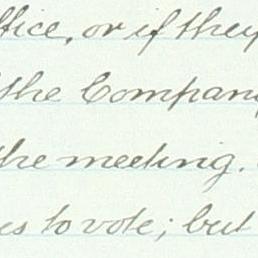 ffice, or if they
the Company
the meeting.
us to vote; but